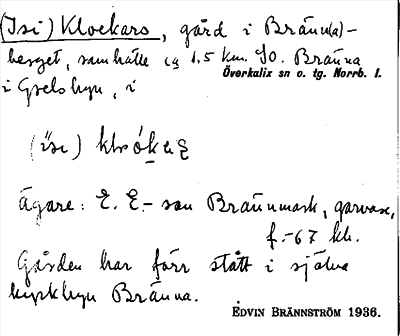 (Isi) Klockars, gård i Bränn(a)-
berget, samhälle ca 1,5 km. SO. Bränna
Överkalix sn o. tg. Norrb. l.
i Grelsbyn, i
(isi)
Ägare: E. E-son Brännmark, garvare,
f.-67 kb.
Gården har förr stått i själva
kyrkbyn Bränna.
EDVIN BRÄNNSTRÖM 1936.